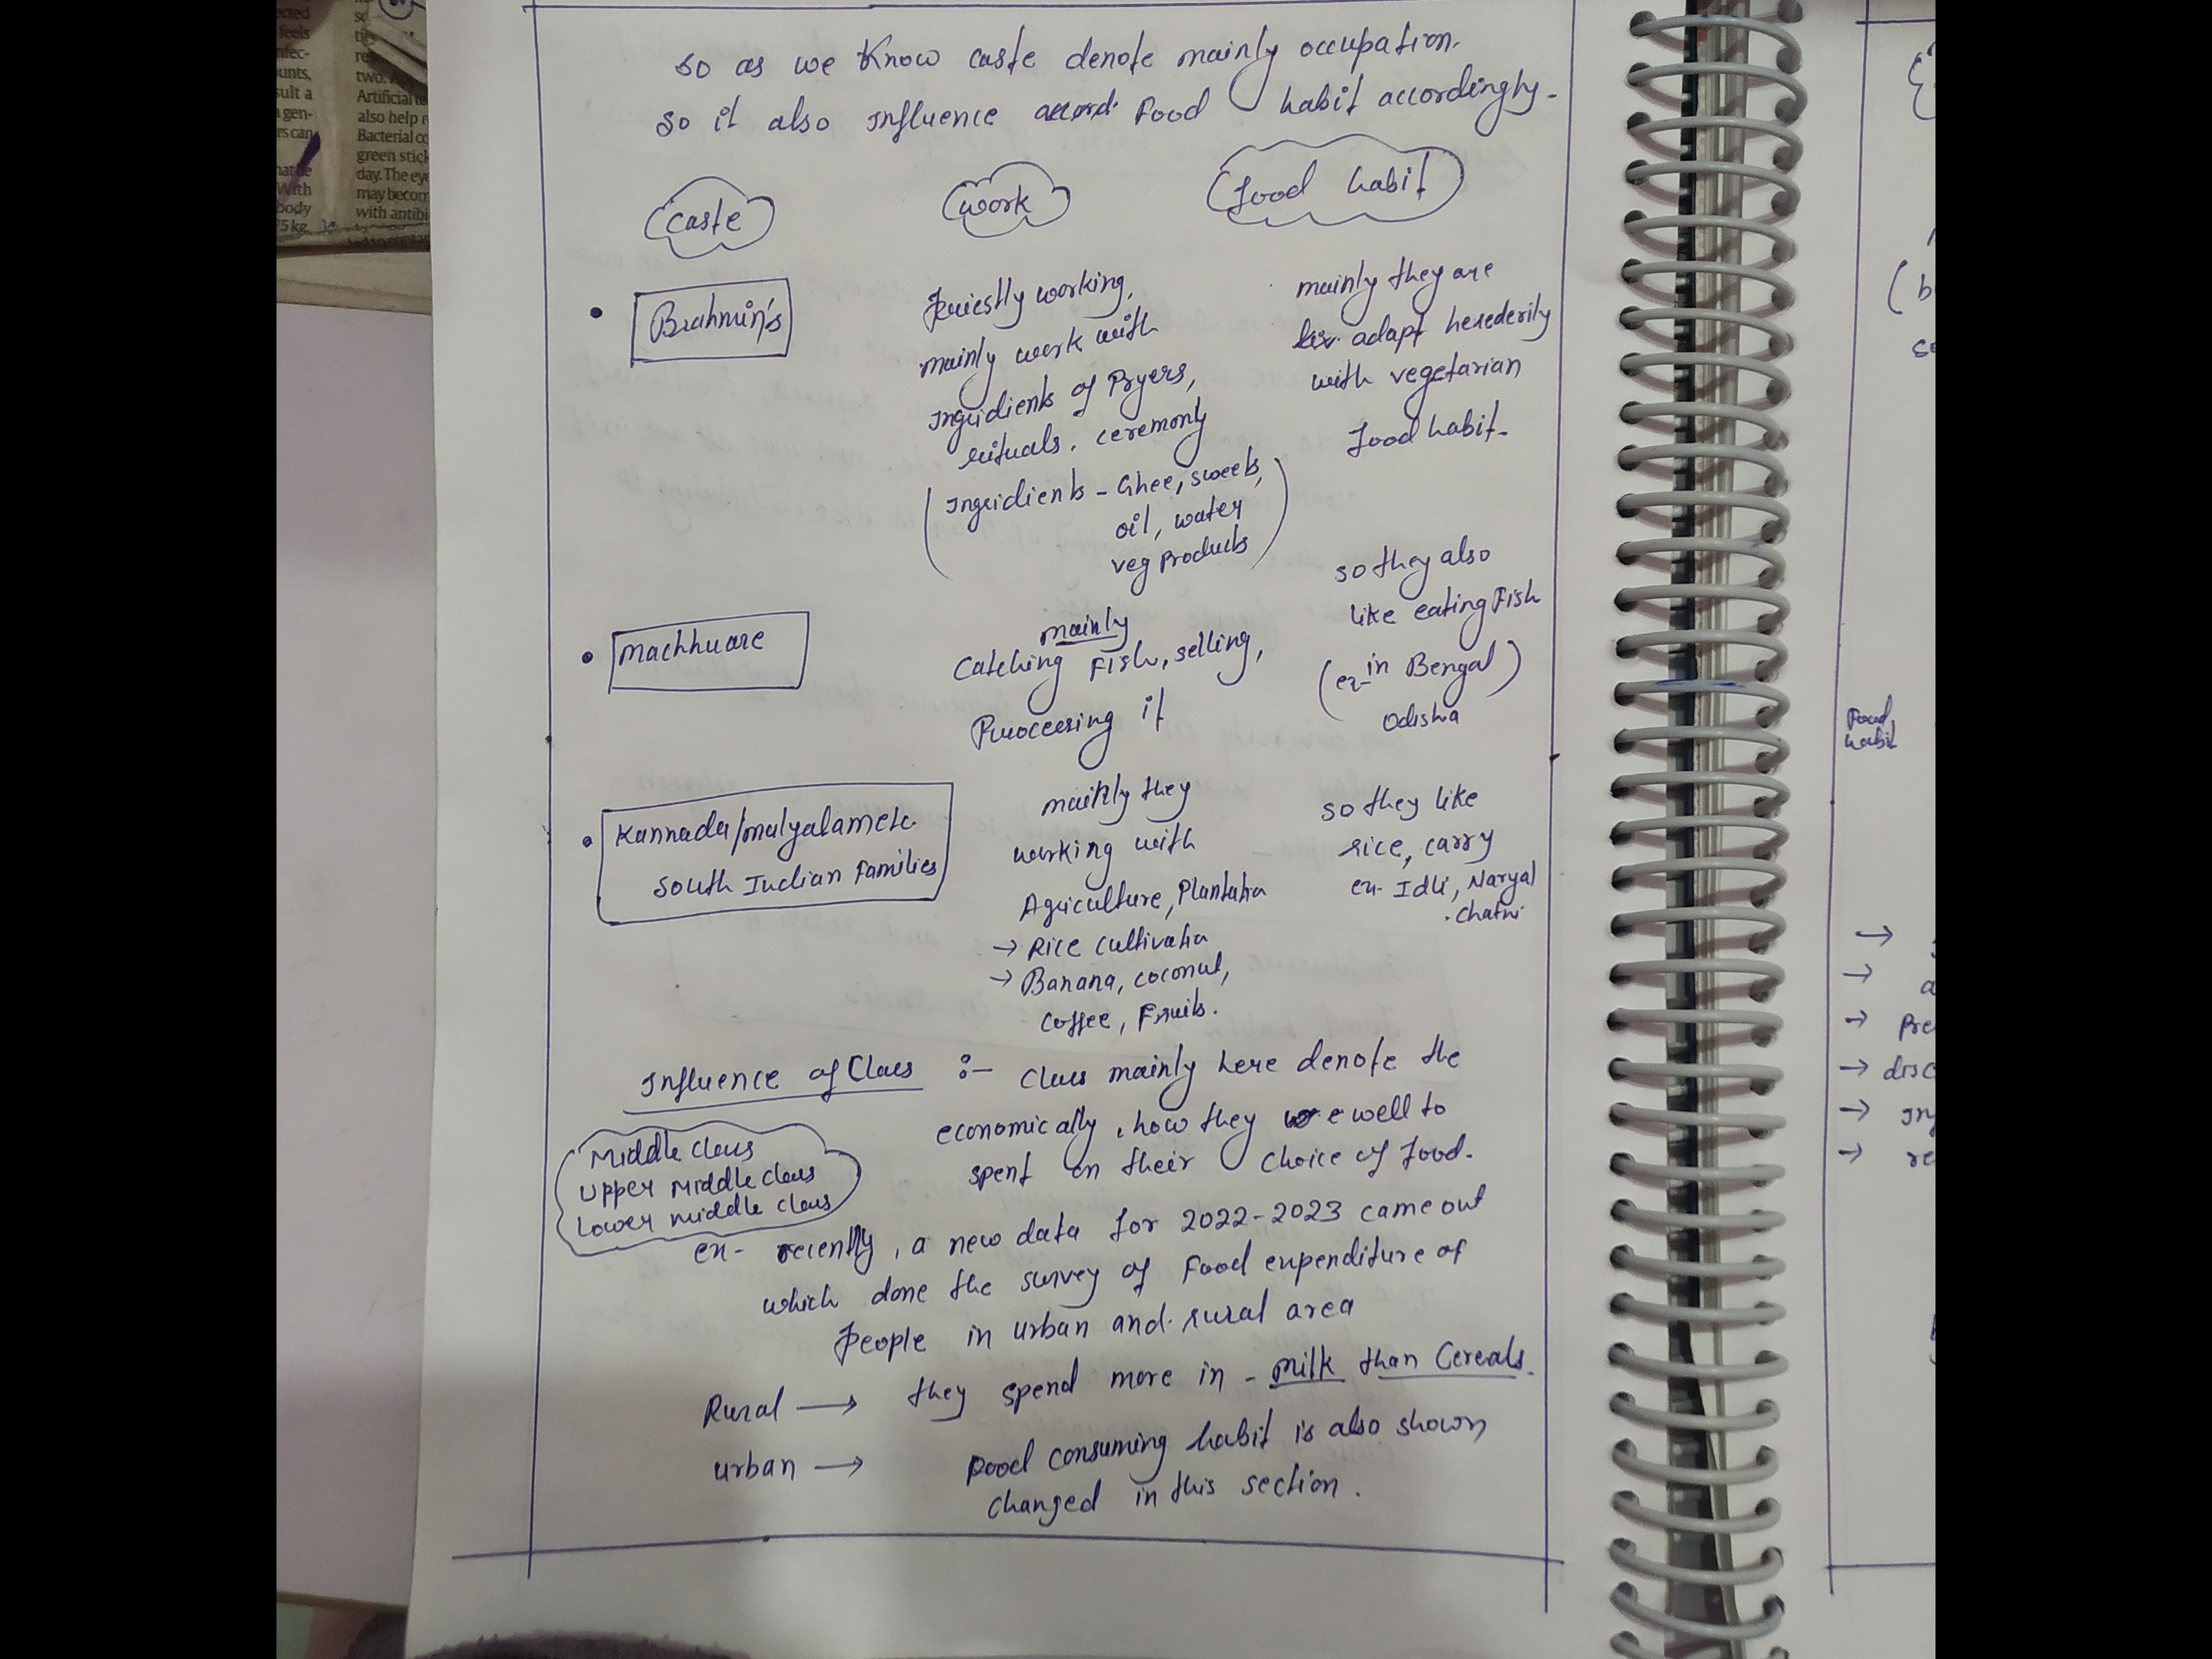 so as we know caste denote mainly occupation.
so it also influence Food habit accordingly.
caste
work
food habit
Brahmin's
Priestly working,
mainly work with
Ingridients of Pryers,
rituals, ceremony
(Ingridients - Ghee, sweets,
oil, water
veg Products)
mainly they are
adapt herederily
with vegetarian
food habit.
machhuare
mainly
Catching Fish, selling,
Proccesing it
so they also
like eating Fish
(ex- in Bengal)
Odisha
Kannada/malyalam etc
south Indian Families
mainly they
working with
Agriculture, Plantation
→ Rice cultivation
→ Banana, coconut,
coffee, Fruits.
so they like
rice, carry
ex- Idli, Naryal
chatni
Influence of Class :- Class mainly here denote the
economically, how they we well to
spent on their choice of food.
Middle class
Upper middle class
Lower middle class
ex- recently, a new data for 2022-2023 came out
which done the survey of Food expenditure of
People in urban and rural area
Rural → they spend more in - milk than Cereals.
urban → Food consuming habit is also shown
changed in this section.
Food
habit
two.
Artificial
also help
Bacterial
green stick
day. The eye
with antibi
feels
sult a
With
body